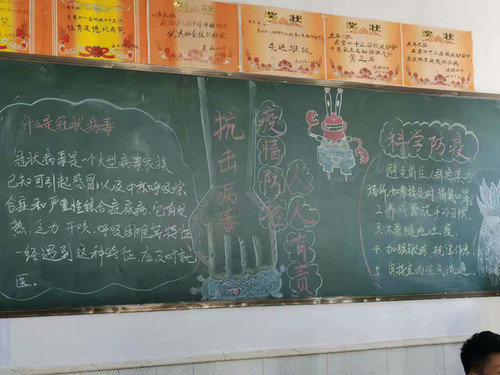 奖状
先进班级
奖状
第三名
奖状
什么是冠状病毒
冠状病毒是一个大型病毒家族
已知可引起感冒以及中东呼吸综
合征和严重急性综合症疾病,它有发
热、乏力、干咳、呼吸困难等特征
一经遇到这种特征,应及时就
医。
抗击病毒
疫情防控
人人有责
科学防疫
1.避免前往人群密集的
场所,如需接近时,请戴口罩
2.养成勤洗手的习惯
3.不要随地
4.加强锻炼,规律作息
5.保持室内空气流通